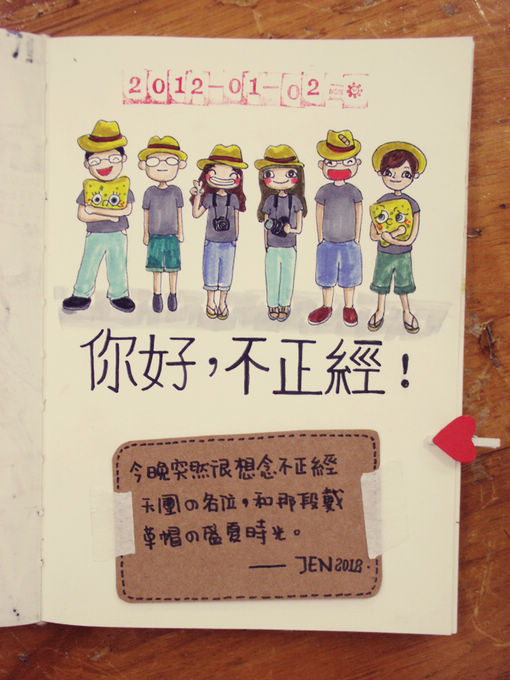 2012-01-02
你好，不正經！
今晚突然很想念不正經
天團の各位，和那段戴
草帽の盛夏時光。
—— JEN2012.